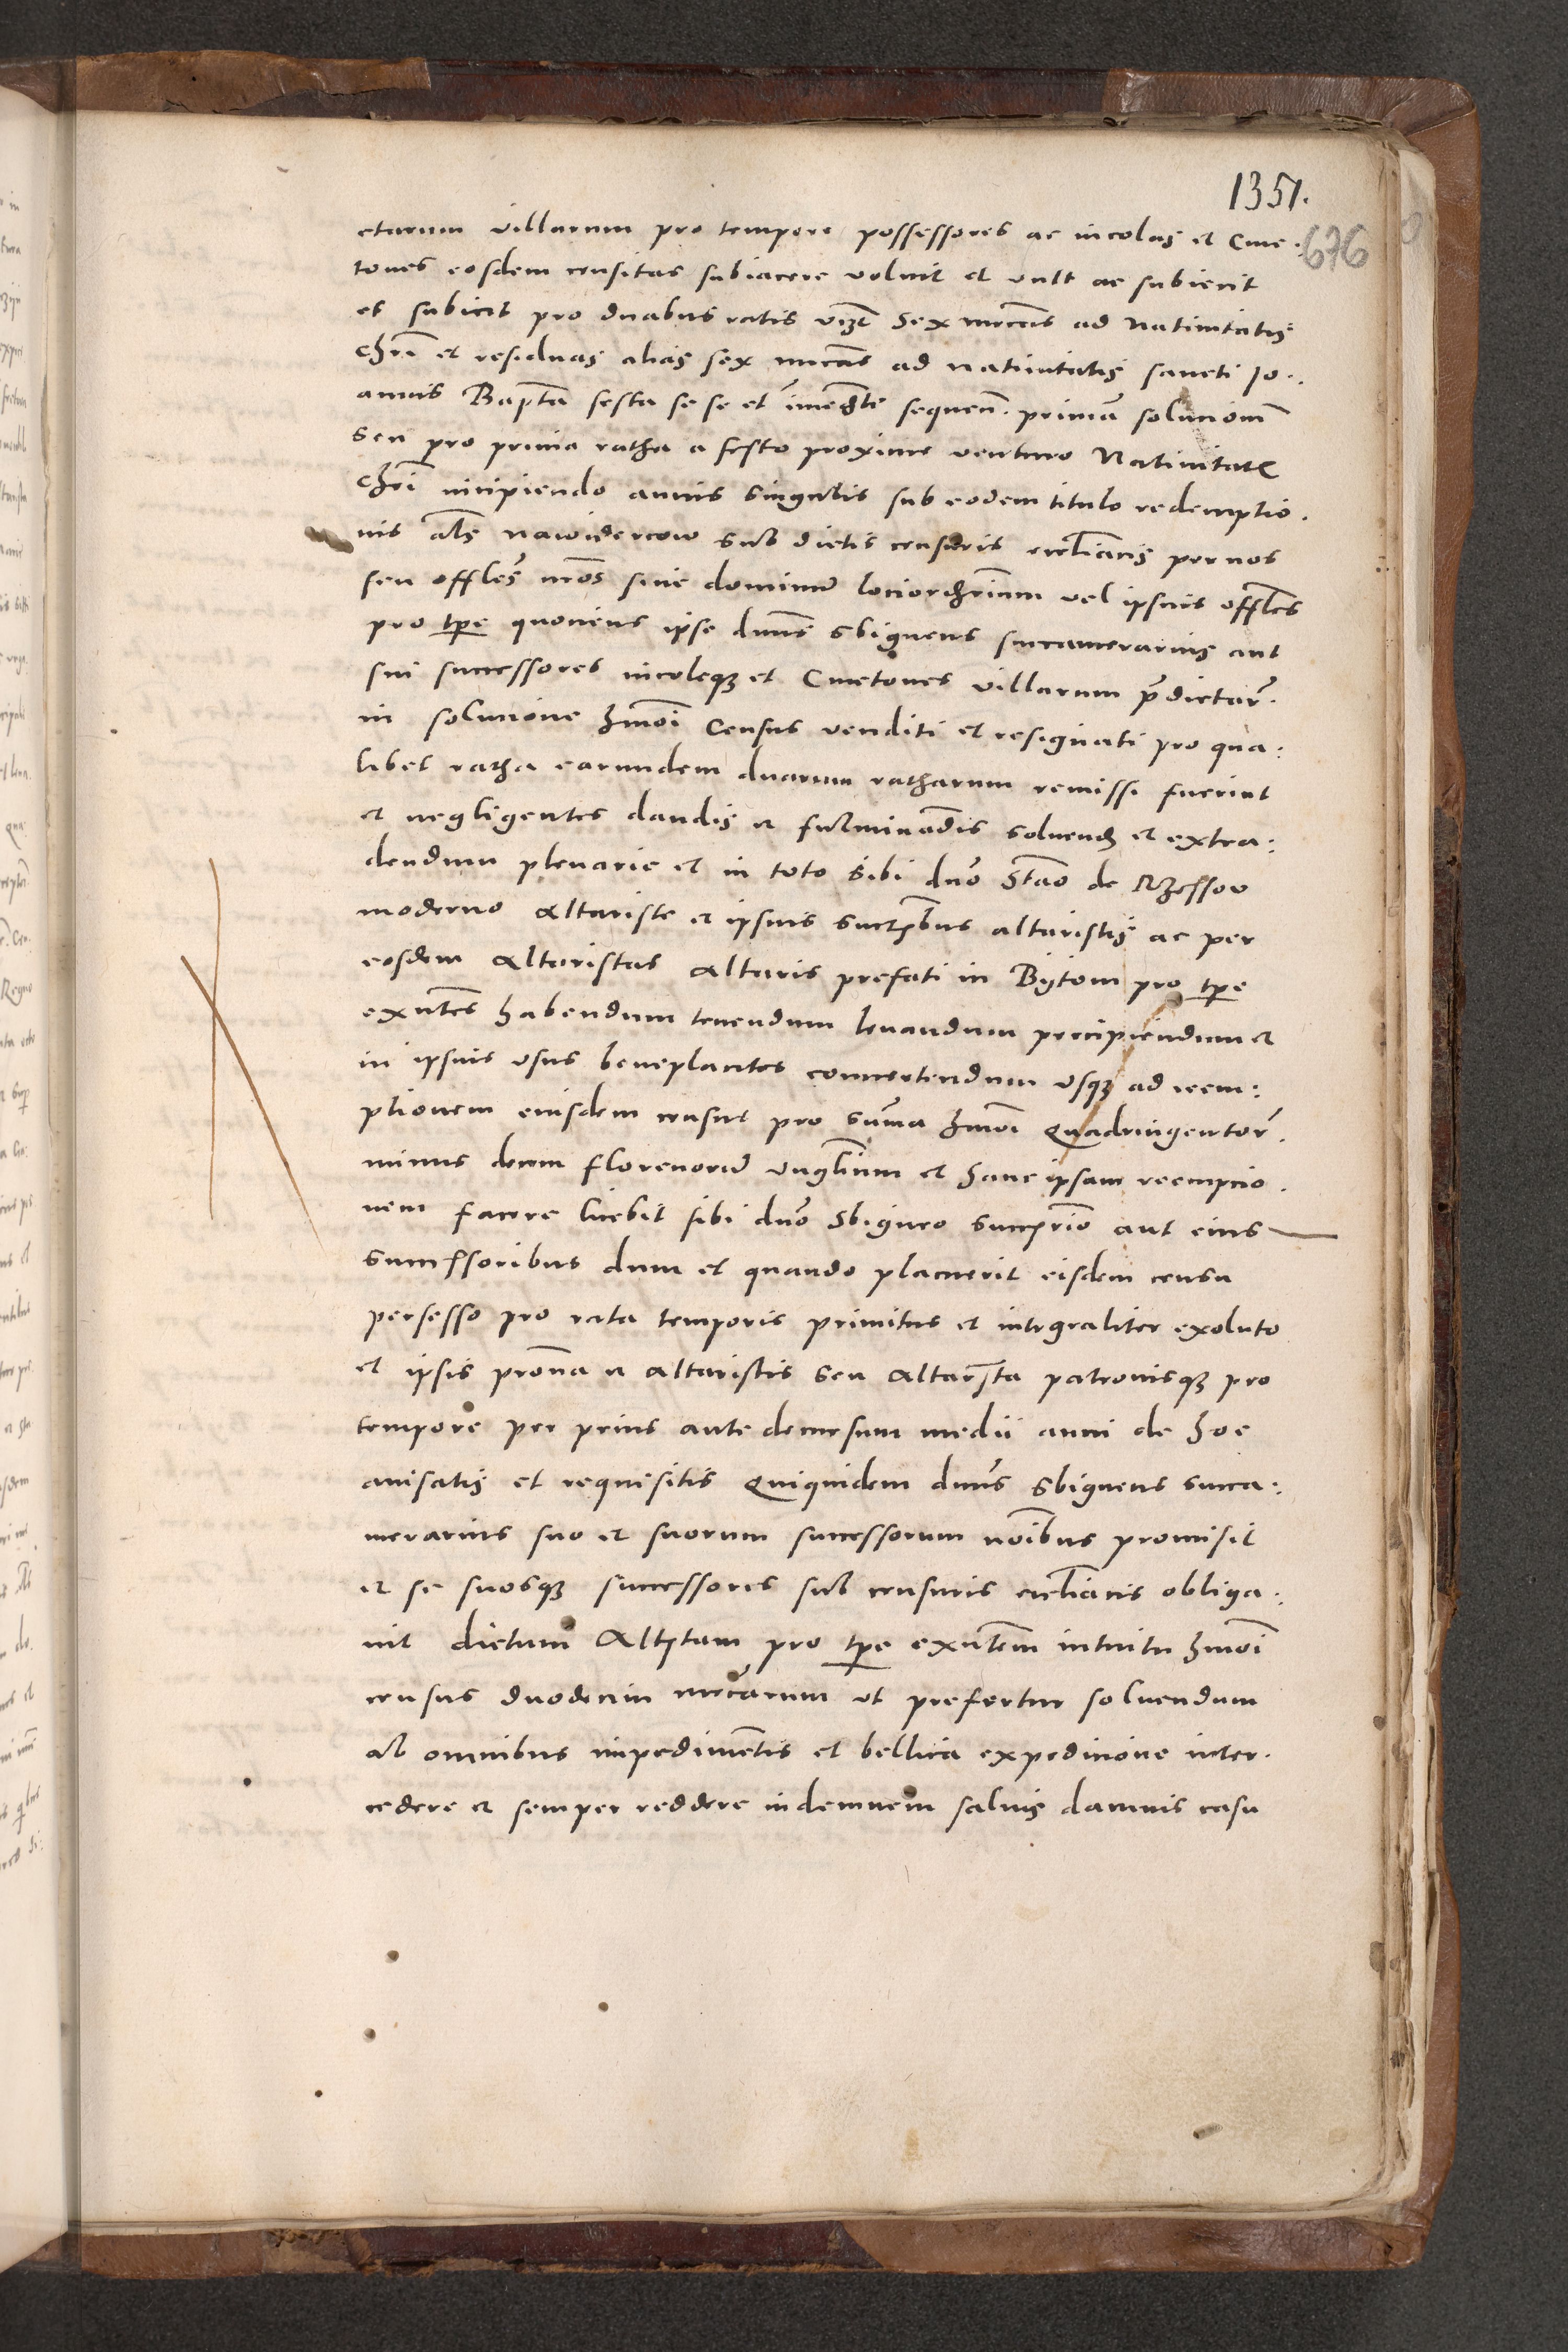 1351.
676
ctarum villarum pro tempore possessores ac incolas et Cme:
tones eosdem censitas subiacere voluit et vult ac subiecit
et subicit pro duabus ratis vizt Sex mrcas ad Natiuitatis
Chri et residuas alias sex mrcas ad natiuitatis sancti Jo:
annis Bapte festa se se et imedte sequen. primam solucionem
seu pro prima ratha a festo proxime venturo Natiuitatis
Chri incipiendo annis singulis sub eodem titulo redemptio.
nis als nawidercow sub dictis censuris ecclianis per nos
seu offles nros siue dominum lociordrium vel ipsius offles
pro tpe quociens ipse dnus Sbigneus succamerarius aut
sui successores incoleqz et Cmetones villarum predictar.
in solucione hmoi Census venditi et resignati pro qua:
libet ratha earundem duarum ratharum remissi fuerint
et negligentes dandis et fulminadis soluend et extra:
dendum plenarie et in toto sibi dno Stao de Rzessow
moderno altariste et ipsius succribus altaristis ac per
eosdem altaristas altaris prefati in Bytom pro tpe
exntes habendum tenendum leuandum precipiendum et
in ipsius vsus beneplacitos conuertendum vsqz ad reem:
ptionem eiusdem census pro suma hmoi Quadringentor.
minus decem florenorum vnglium et hanc ipsam reempcio.
nem facere licebit sibi dno Sbigneo succrio aut eius
successoribus dum et quando placuerit eisdem censu
persesso pro rata temporis primitus et integraliter exoluto
et ipsis et altaristis seu altarista patronisqz pro
tempore per prius ante decursum medii anni de hoc
auisatis et requisitis Quiquidem dnus Sbigneus succa:
merarius suo et suorum successorum noibus promisit
et se suosqz successores sub censuris ecclianis obliga:
uit dictum Altistam pro tpe exntem intuitu hmoi
census duodecim mrcarum vt prefertur soluendum
ab omnibus impedimetis et bellica expedicione inter.
cedere et semper reddere indemnem saluis damnis casu